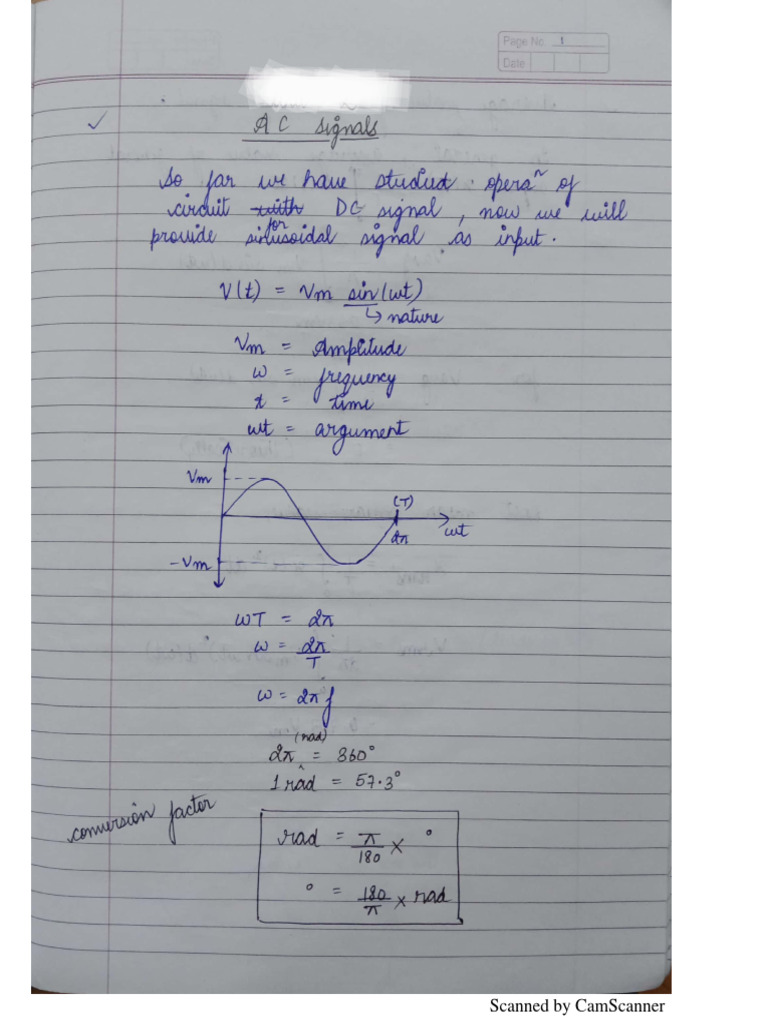 Page No. 1
Date
AC signals
So far we have studied operaⁿ of
circuit with DC signal, now we will
for
provide sinusoidal signal as input.
V(t) = Vm sin(wt)
↳ nature
Vm = Amplitude
ω = frequency
t = time
wt = argument
Vm
(T)
2π
wt
-Vm
ωT = 2π
ω = 2π/T
ω = 2πf
(rad)
2π = 360°
1 rad = 57.3°
conversion factor
rad = π/180 × °
° = 180/π × rad
Scanned by CamScanner